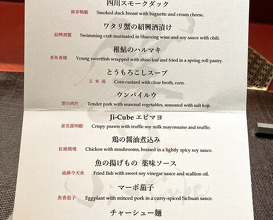 四川スモークダック
Smoked duck breast with baguette and cream cheese.
ワタリ蟹の紹興酒漬け
Swimming crab marinated in Shaoxing wine and soy sauce with chili.
稚鮎のハルマキ
Young sweetfish wrapped with shiso leaf and fried in a spring roll pastry.
とうもろこしスープ
Corn custard with clear broth, corn.
ウンパイルウ
Tender pork with seasonal vegetables, seasoned with salt koji.
Ji-Cube エビマヨ
Crispy prawn with truffle soy milk mayonnaise and truffle.
鶏の醤油煮込み
Chicken with mushrooms, braised in a lightly spicy soy sauce.
魚の揚げもの 薬味ソース
Fried fish with sweet soy vinegar sauce and scallion oil.
マーボ茄子
Eggplant with minced pork in a curry-paced Sichuan sauce.
チャーシュー麺